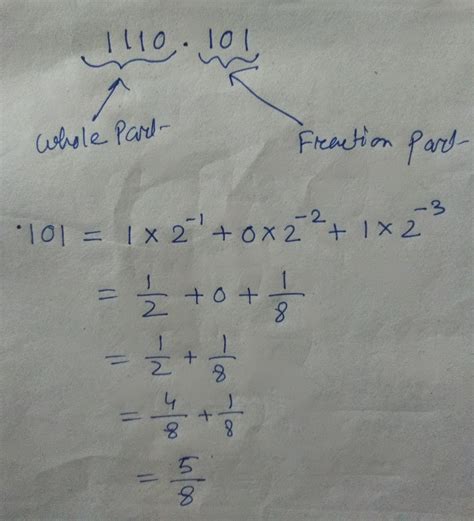 1110 . 101
Whole Part
Fraction Part
.101 = 1 × 2⁻¹ + 0 × 2⁻² + 1 × 2⁻³
= 1/2 + 0 + 1/8
= 1/2 + 1/8
= 4/8 + 1/8
= 5/8